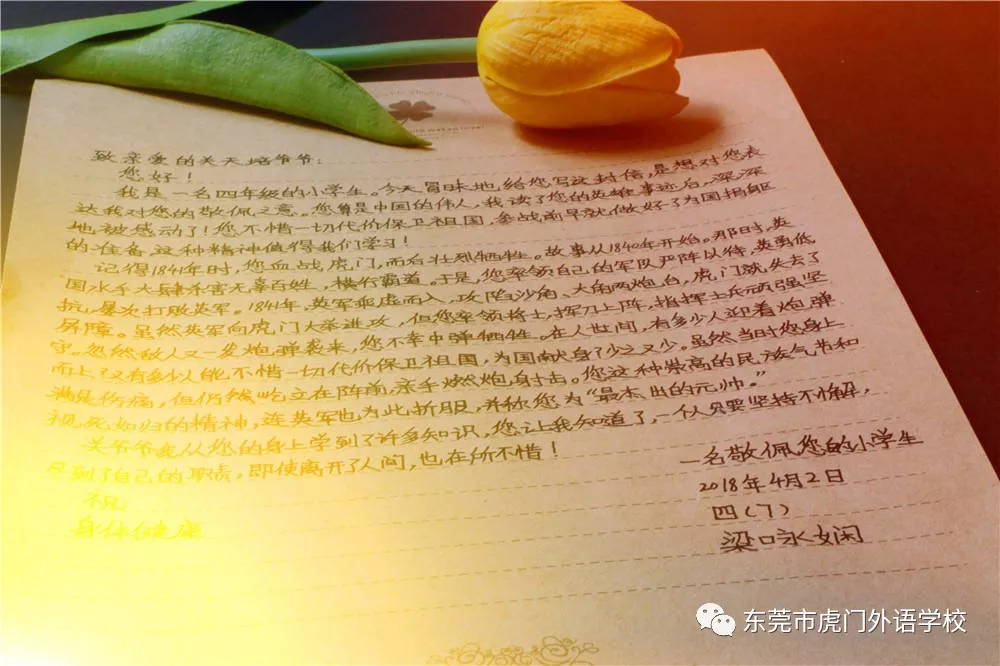 致亲爱的关天培爷爷：
您好！
我是一名四年级的小学生。今天冒昧地给您写这封信，是想对您表
达我对您的敬佩之意。您算是中国的伟人，我读了您的英雄事迹后，深深
地被感动了！您不惜一切代价保卫祖国，参战前早就做好了为国捐躯
的准备，这种精神值得我们学习！
记得1841年时，您血战虎门，而后壮烈牺牲。故事从1840年开始。那时，英
国水手大肆杀害无辜百姓，横行霸道。于是，您率领自己的军队严阵以待，英勇抵
抗，屡次打败英军。1841年，英军乘虚而入，攻陷沙角、大角两炮台，虎门就失去了
屏障。虽然英军向虎门大举进攻，但您率领将士，挥刀上阵，指挥士兵顽强坚
守。忽然敌人又一发炮弹袭来，您不幸中弹牺牲。在人世间，有多少人迎着炮弹
而上？又有多少人能不惜一切代价保卫祖国，为国献身？少之又少。虽然当时您身上
满是伤痛，但仍然屹立在阵前，亲手燃炮射击。您这种崇高的民族气节和
视死如归的精神，连英军也为此折服，并称您为“最杰出的元帅。”
关爷爷我从您的身上学到了许多知识，您让我知道了，一个人只要坚持不懈，
尽到了自己的职责，即使离开了人间，也在所不惜！
祝
身体健康
一名敬佩您的小学生
2018年4月2日
四（7）
梁咏娴
东莞市虎门外语学校